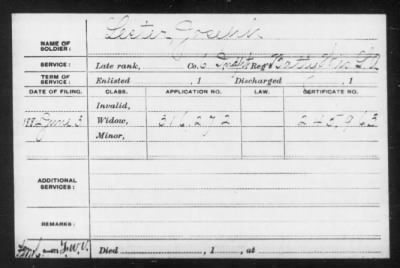 NAME OF SOLDIER: Lester, Joseph
SERVICE: Late rank, Co. Indpt Reg't Batty Wis L.A.
TERM OF SERVICE: Enlisted , 1 Discharged , 1
DATE OF FILING. CLASS. APPLICATION NO. LAW. CERTIFICATE NO.
Invalid,
188 June 3 Widow, 316.272 245963
Minor,
ADDITIONAL SERVICES:
REMARKS:
Died , 1 , at